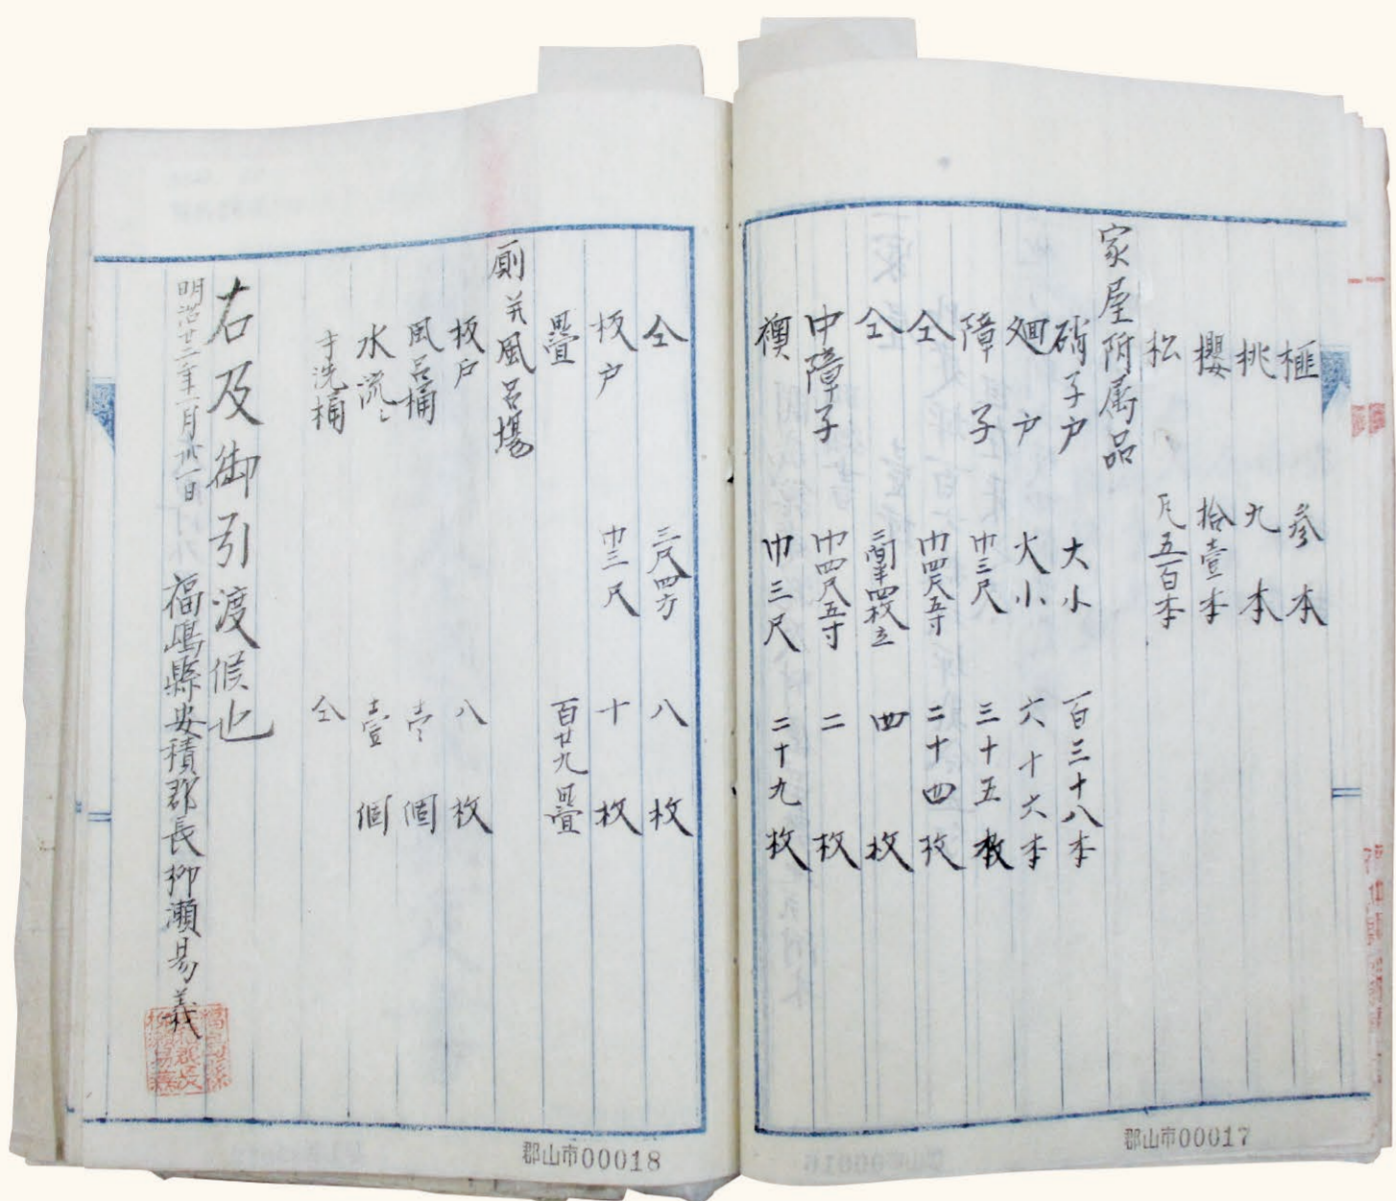 榧 参本
桃 九本
櫻 拾壹本
松 凡五百本
家屋附属品
硝子戸 大小 百三十八本
廻戸 大小 六十六本
障子 巾三尺 三十五枚
仝 巾四尺五寸 二十四枚
仝 二間半四枚立 四枚
中障子 巾四尺五寸 二枚
襖 巾三尺 二十九枚
郡山市00017
仝 三尺四方 八枚
板戸 巾三尺 十枚
疊 百廿九疊
厠并風呂場
板戸 八枚
風呂桶 壱個
水流シ 壹個
手洗桶 仝
右及御引渡候也
明治廿二年一月卅一日
福嶋縣安積郡長柳瀬易義
郡山市00018